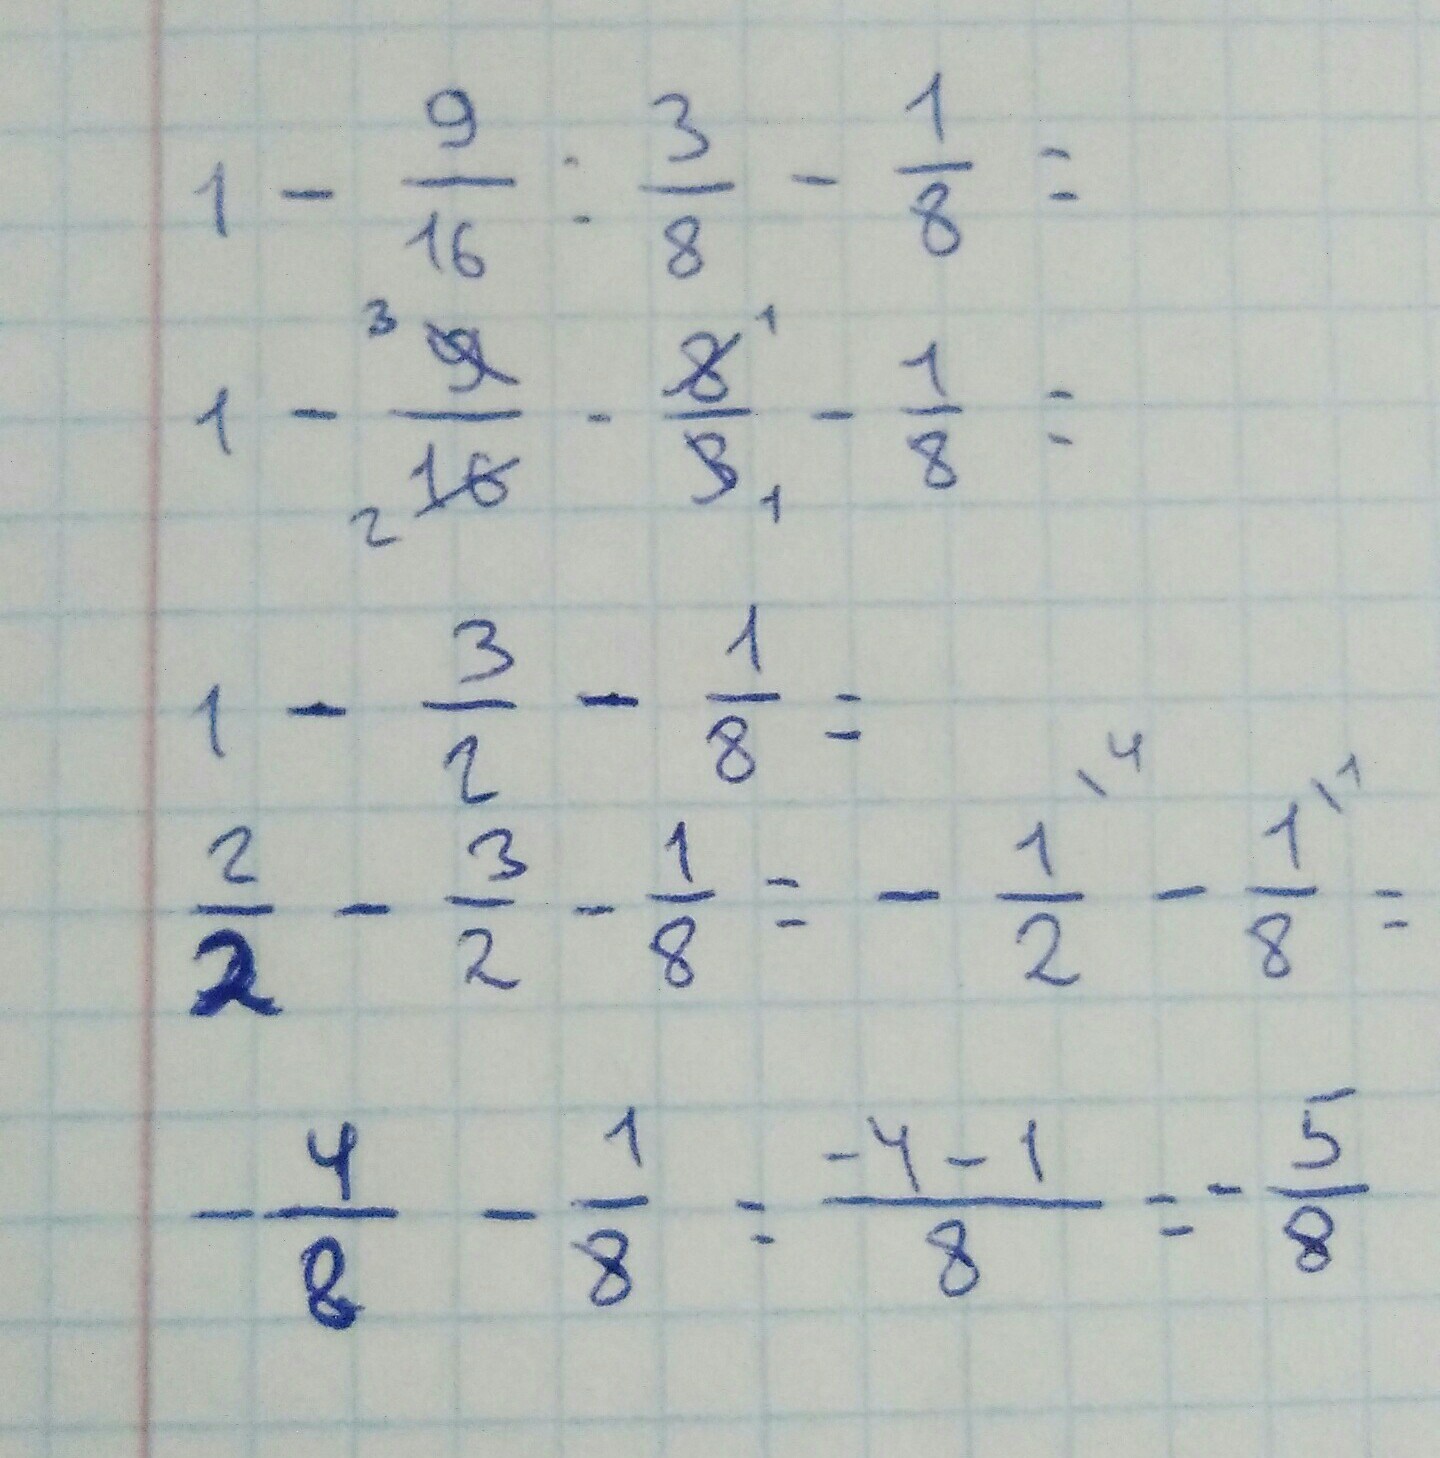 1 - 9/16 : 3/8 - 1/8 =
1 - 3 9/16 2 · 8/3 1 1 - 1/8 =
1 - 3/2 - 1/8 =
2/2 - 3/2 - 1/8 = - 1/2 \4 - 1/8 \1 =
- 4/8 - 1/8 = -4-1/8 = - 5/8